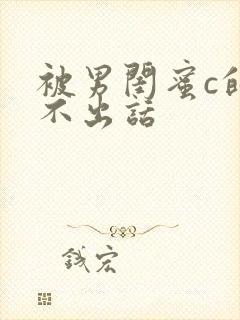 被男閨蜜c的
不出話
錢宏